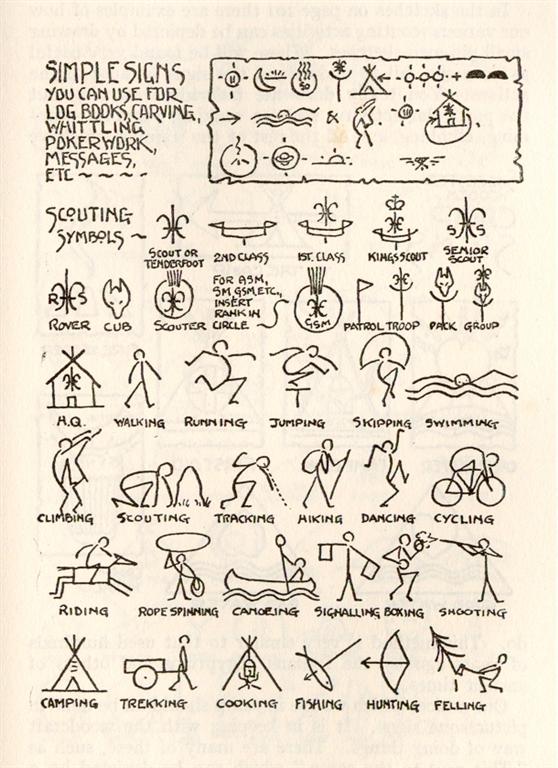 SIMPLE SIGNS
YOU CAN USE FOR
LOG BOOKS, CARVING,
WHITTLING,
POKERWORK,
MESSAGES,
ETC ~ ~ ~ ~
50
+
&
SCOUTING
SYMBOLS ~
SCOUT OR
TENDERFOOT
2ND CLASS
1ST. CLASS
KINGS SCOUT
SENIOR
SCOUT
S S
R S
ROVER
CUB
SCOUTER
FOR ASM,
SM, GSM, ETC.,
INSERT
RANK IN
CIRCLE
GSM
PATROL
TROOP
PACK
GROUP
H.Q.
WALKING
RUNNING
JUMPING
SKIPPING
SWIMMING
CLIMBING
SCOUTING
TRACKING
HIKING
DANCING
CYCLING
RIDING
ROPE SPINNING
CANOEING
SIGNALLING
BOXING
SHOOTING
CAMPING
TREKKING
COOKING
FISHING
HUNTING
FELLING